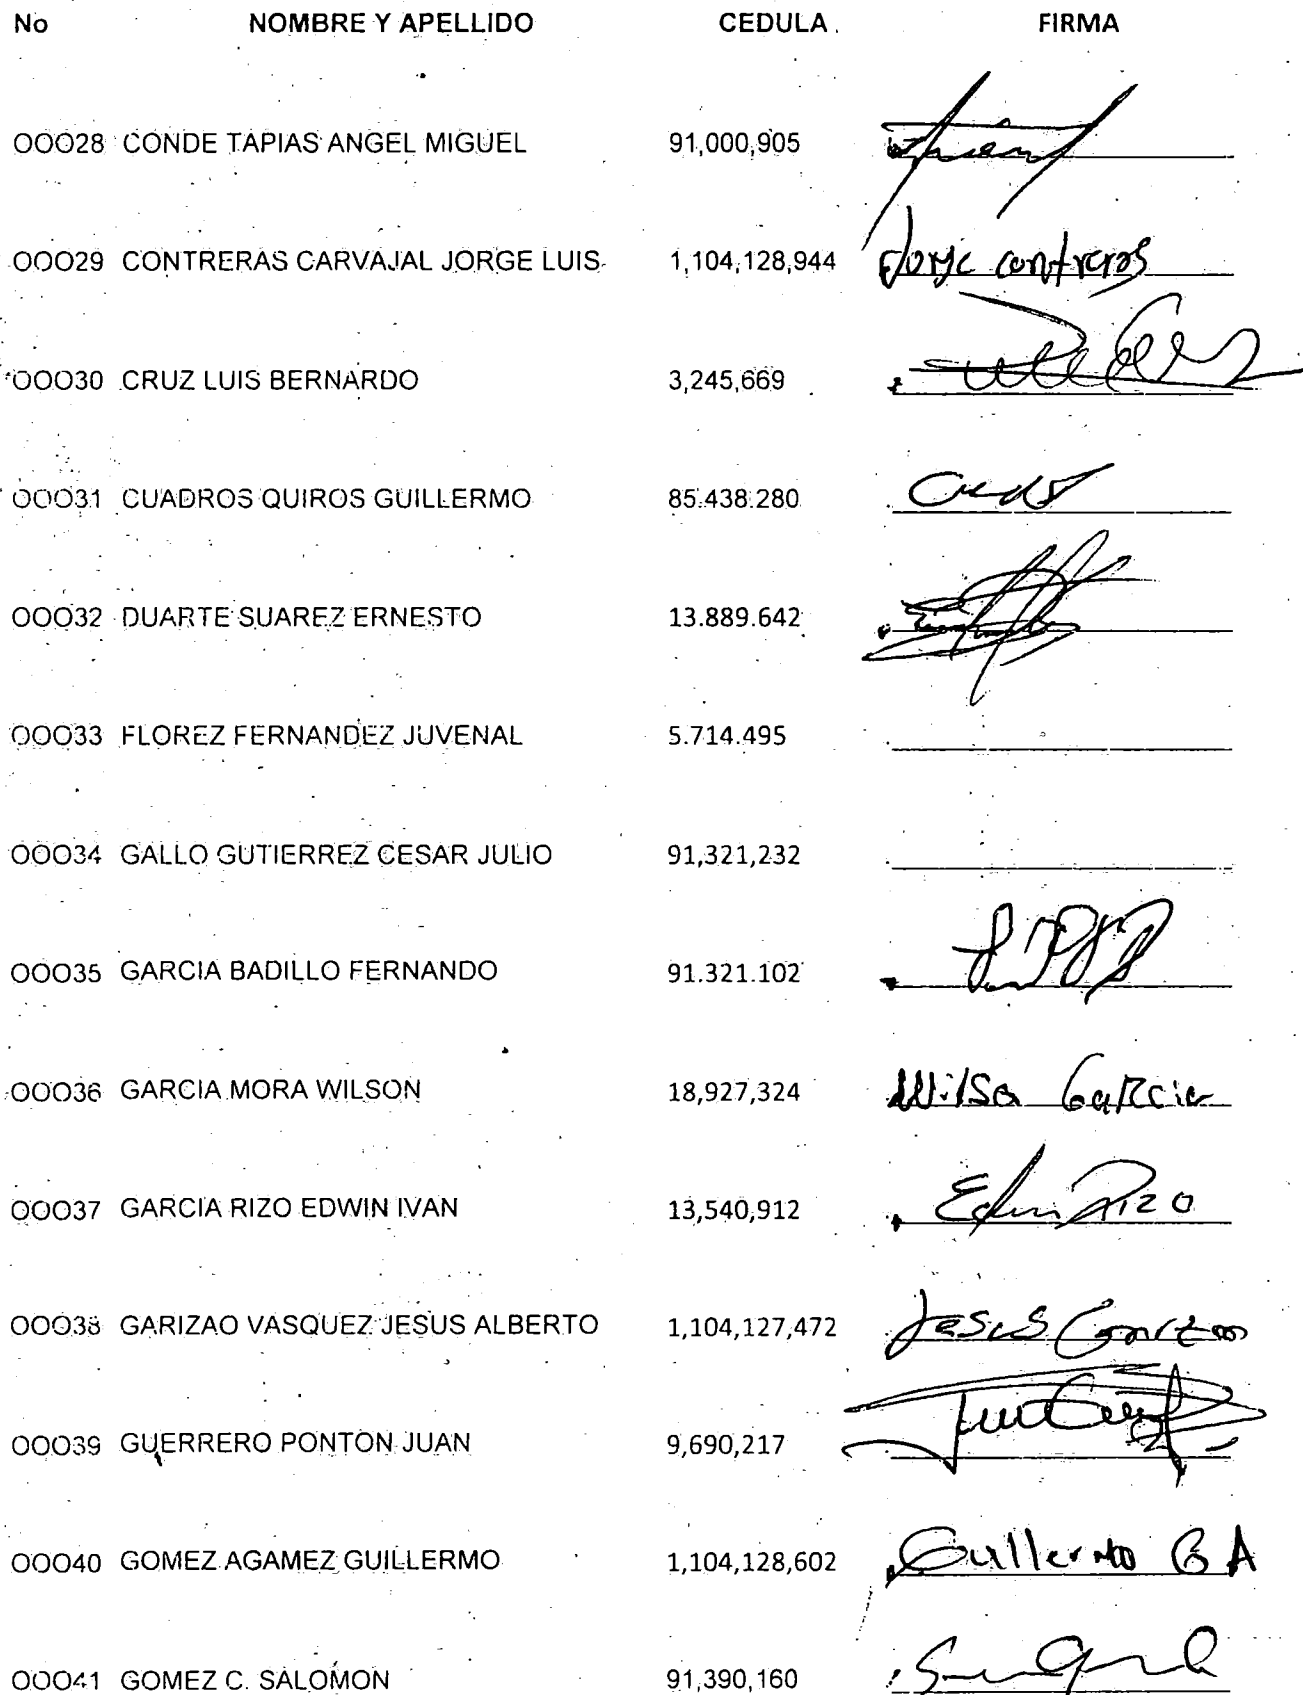 No NOMBRE Y APELLIDO CEDULA FIRMA
00028 CONDE TAPIAS ANGEL MIGUEL 91,000,905
00029 CONTRERAS CARVAJAL JORGE LUIS 1,104,128,944 Jorge contreras
00030 CRUZ LUIS BERNARDO 3,245,669
00031 CUADROS QUIROS GUILLERMO 85.438.280
00032 DUARTE SUAREZ ERNESTO 13.889.642
00033 FLOREZ FERNANDEZ JUVENAL 5.714.495
00034 GALLO GUTIERREZ CESAR JULIO 91,321,232
00035 GARCIA BADILLO FERNANDO 91.321.102
00036 GARCIA MORA WILSON 18,927,324 Wilso Garcia
00037 GARCIA RIZO EDWIN IVAN 13,540,912 Edwin Rizo
00038 GARIZAO VASQUEZ JESUS ALBERTO 1,104,127,472 Jesus
00039 GUERRERO PONTON JUAN 9,690,217
00040 GOMEZ AGAMEZ GUILLERMO 1,104,128,602 Guillermo G A
00041 GOMEZ C. SALOMON 91,390,160